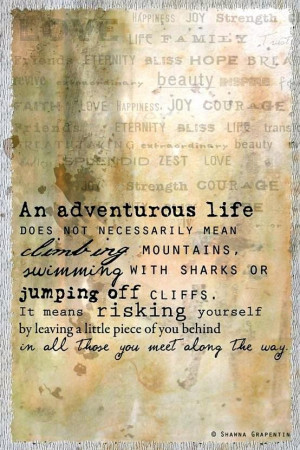 HAPPINESS JOY Strength
LOVE LIFE FAMILY
Friends ETERNITY BLISS HOPE BREA
extraordinary beauty INSPIRE
FAITH LOVE HAPPINESS JOY COURAGE
Friends ETERNITY BLISS LIFE
extraordinary beauty
SPLENDID ZEST LOVE
JOY Strength COURAGE
An adventurous life
DOES NOT NECESSARILY MEAN
climbing MOUNTAINS,
swimming WITH SHARKS OR
jumping off CLIFFS.
It means risking yourself
by leaving a little piece of you behind
in all those you meet along the way.
© SHANNA GRAPENTIN